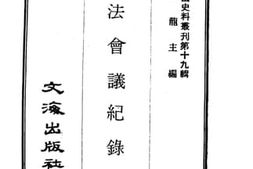 史料叢刊第十九輯
龍主編
法會議紀錄
文海出版社